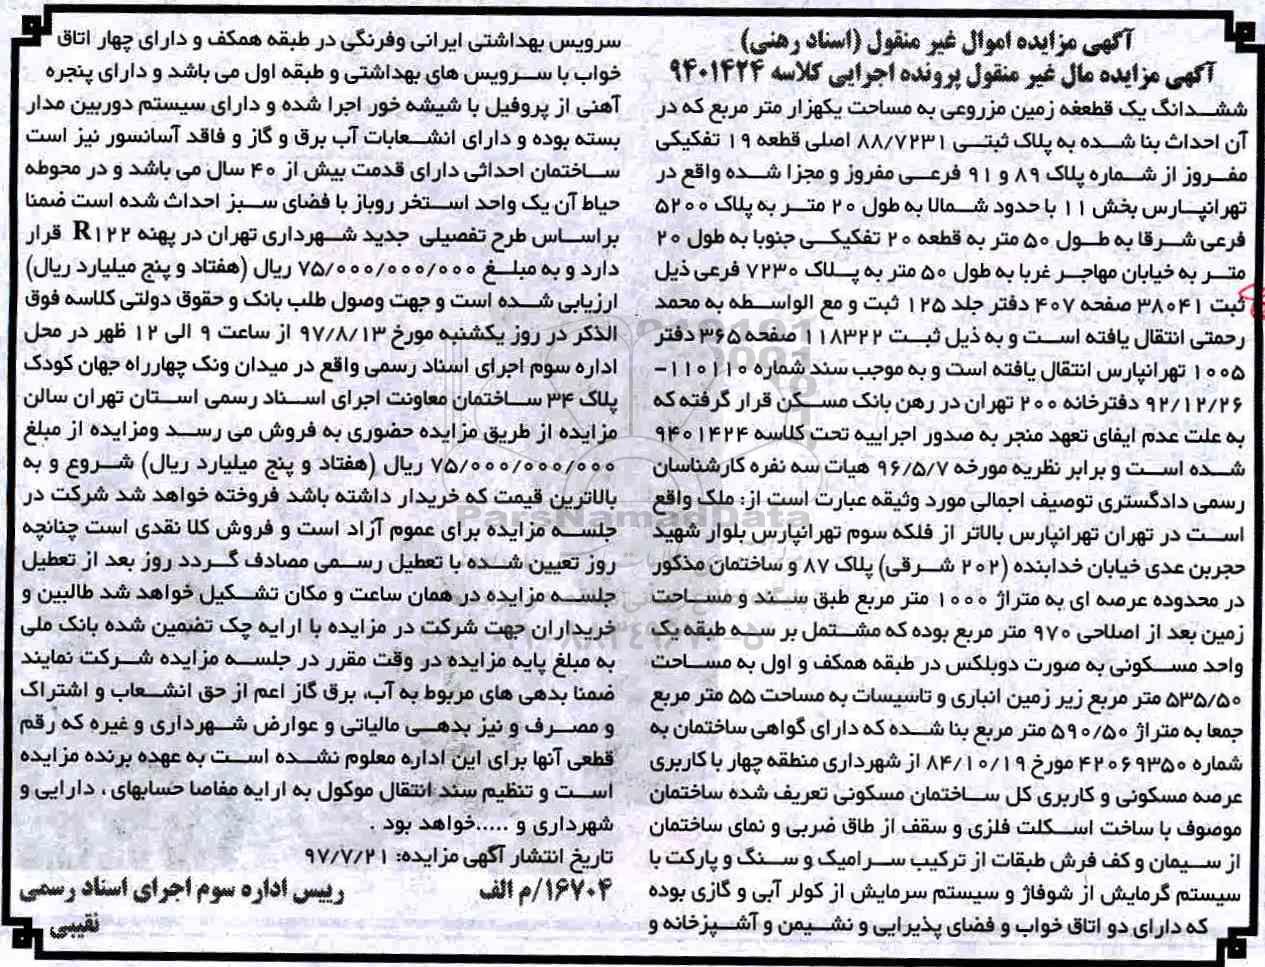 آگهی مزایده اموال غیر منقول (اسناد رهنی)
آگهی مزایده مال غیر منقول پرونده اجرایی کلاسه ۹۴۰۱۴۲۴
ششدانگ یک قطعغه زمین مزروعی به مساحت یکهزار متر مربع که در
آن احداث بنا شده به پلاک ثبتی ۸۸/۷۲۳۱ اصلی قطعه ۱۹ تفکیکی
مفروز از شماره پلاک ۸۹ و ۹۱ فرعی مفروز و مجزا شده واقع در
تهرانپارس بخش ۱۱ با حدود شمالا به طول ۲۰ متر به پلاک ۵۲۰۰
فرعی شرقا به طول ۵۰ متر به قطعه ۲۰ تفکیکی جنوبا به طول ۲۰
متر به خیابان مهاجر غربا به طول ۵۰ متر به پلاک ۷۲۳۰ فرعی ذیل
ثبت ۳۸۰۴۱ صفحه ۴۰۷ دفتر جلد ۱۲۵ ثبت و مع الواسطه به محمد
رحمتی انتقال یافته است و به ذیل ثبت ۱۱۸۳۲۲ صفحه ۳۶۵ دفتر
۱۰۰۵ تهرانپارس انتقال یافته است و به موجب سند شماره ۱۱۰۱۱۰-
۹۲/۱۲/۲۶ دفترخانه ۲۰۰ تهران در رهن بانک مسکن قرار گرفته که
به علت عدم ایفای تعهد منجر به صدور اجراییه تحت کلاسه ۹۴۰۱۴۲۴
شده است و برابر نظریه مورخه ۹۶/۵/۷ هیات سه نفره کارشناسان
رسمی دادگستری توصیف اجمالی مورد وثیقه عبارت است از: ملک واقع
است در تهران تهرانپارس بالاتر از فلکه سوم تهرانپارس بلوار شهید
حجربن عدی خیابان خدابنده (۲۰۲ شرقی) پلاک ۸۷ و ساختمان مذکور
در محدوده عرصه ای به متراژ ۱۰۰۰ متر مربع طبق سند و مساحت
زمین بعد از اصلاحی ۹۷۰ متر مربع بوده که مشتمل بر سه طبقه یک
واحد مسکونی به صورت دوبلکس در طبقه همکف و اول به مساحت
۵۳۵/۵۰ متر مربع زیر زمین انباری و تاسیسات به مساحت ۵۵ متر مربع
جمعا به متراژ ۵۹۰/۵۰ متر مربع بنا شده که دارای گواهی ساختمان به
شماره ۴۲۰۶۹۳۵۰ مورخ ۸۴/۱۰/۱۹ از شهرداری منطقه چهار با کاربری
عرصه مسکونی و کاربری کل ساختمان مسکونی تعریف شده ساختمان
موصوف با ساخت اسکلت فلزی و سقف از طاق ضربی و نمای ساختمان
از سیمان و کف فرش طبقات از ترکیب سرامیک و سنگ و پارکت با
سیستم گرمایش از شوفاژ و سیستم سرمایش از کولر آبی و گازی بوده
که دارای دو اتاق خواب و فضای پذیرایی و نشیمن و آشپزخانه و
سرویس بهداشتی ایرانی وفرنگی در طبقه همکف و دارای چهار اتاق
خواب با سرویس های بهداشتی و طبقه اول می باشد و دارای پنجره
آهنی از پروفیل با شیشه خور اجرا شده و دارای سیستم دوربین مدار
بسته بوده و دارای انشعابات آب برق و گاز و فاقد آسانسور نیز است
ساختمان احداثی دارای قدمت بیش از ۴۰ سال می باشد و در محوطه
حیاط آن یک واحد استخر روباز با فضای سبز احداث شده است ضمنا
براساس طرح تفصیلی جدید شهرداری تهران در پهنه R۱۲۲ قرار
دارد و به مبلغ ۷۵/۰۰۰/۰۰۰/۰۰۰ ریال (هفتاد و پنج میلیارد ریال)
ارزیابی شده است و جهت وصول طلب بانک و حقوق دولتی کلاسه فوق
الذکر در روز یکشنبه مورخ ۹۷/۸/۱۳ از ساعت ۹ الی ۱۲ ظهر در محل
اداره سوم اجرای اسناد رسمی واقع در میدان ونک چهارراه جهان کودک
پلاک ۳۴ ساختمان معاونت اجرای اسناد رسمی استان تهران سالن
مزایده از طریق مزایده حضوری به فروش می رسد ومزایده از مبلغ
۷۵/۰۰۰/۰۰۰/۰۰۰ ریال (هفتاد و پنج میلیارد ریال) شروع و به
بالاترین قیمت که خریدار داشته باشد فروخته خواهد شد شرکت در
جلسه مزایده برای عموم آزاد است و فروش کلا نقدی است چنانچه
روز تعیین شده با تعطیل رسمی مصادف گردد روز بعد از تعطیل
جلسه مزایده در همان ساعت و مکان تشکیل خواهد شد طالبین و
خریداران جهت شرکت در مزایده با ارایه چک تضمین شده بانک ملی
به مبلغ پایه مزایده در وقت مقرر در جلسه مزایده شرکت نمایند
ضمنا بدهی های مربوط به آب، برق گاز اعم از حق انشعاب و اشتراک
و مصرف و نیز بدهی مالیاتی و عوارض شهرداری و غیره که رقم
قطعی آنها برای این اداره معلوم نشده است به عهده برنده مزایده
است و تنظیم سند انتقال موکول به ارایه مفاصا حسابهای ، دارایی و
شهرداری و .....خواهد بود .
تاریخ انتشار آگهی مزایده: ۹۷/۷/۲۱
۱۶۷۰۴/م الف
رییس اداره سوم اجرای اسناد رسمی
نقیبی
ParsNamadData